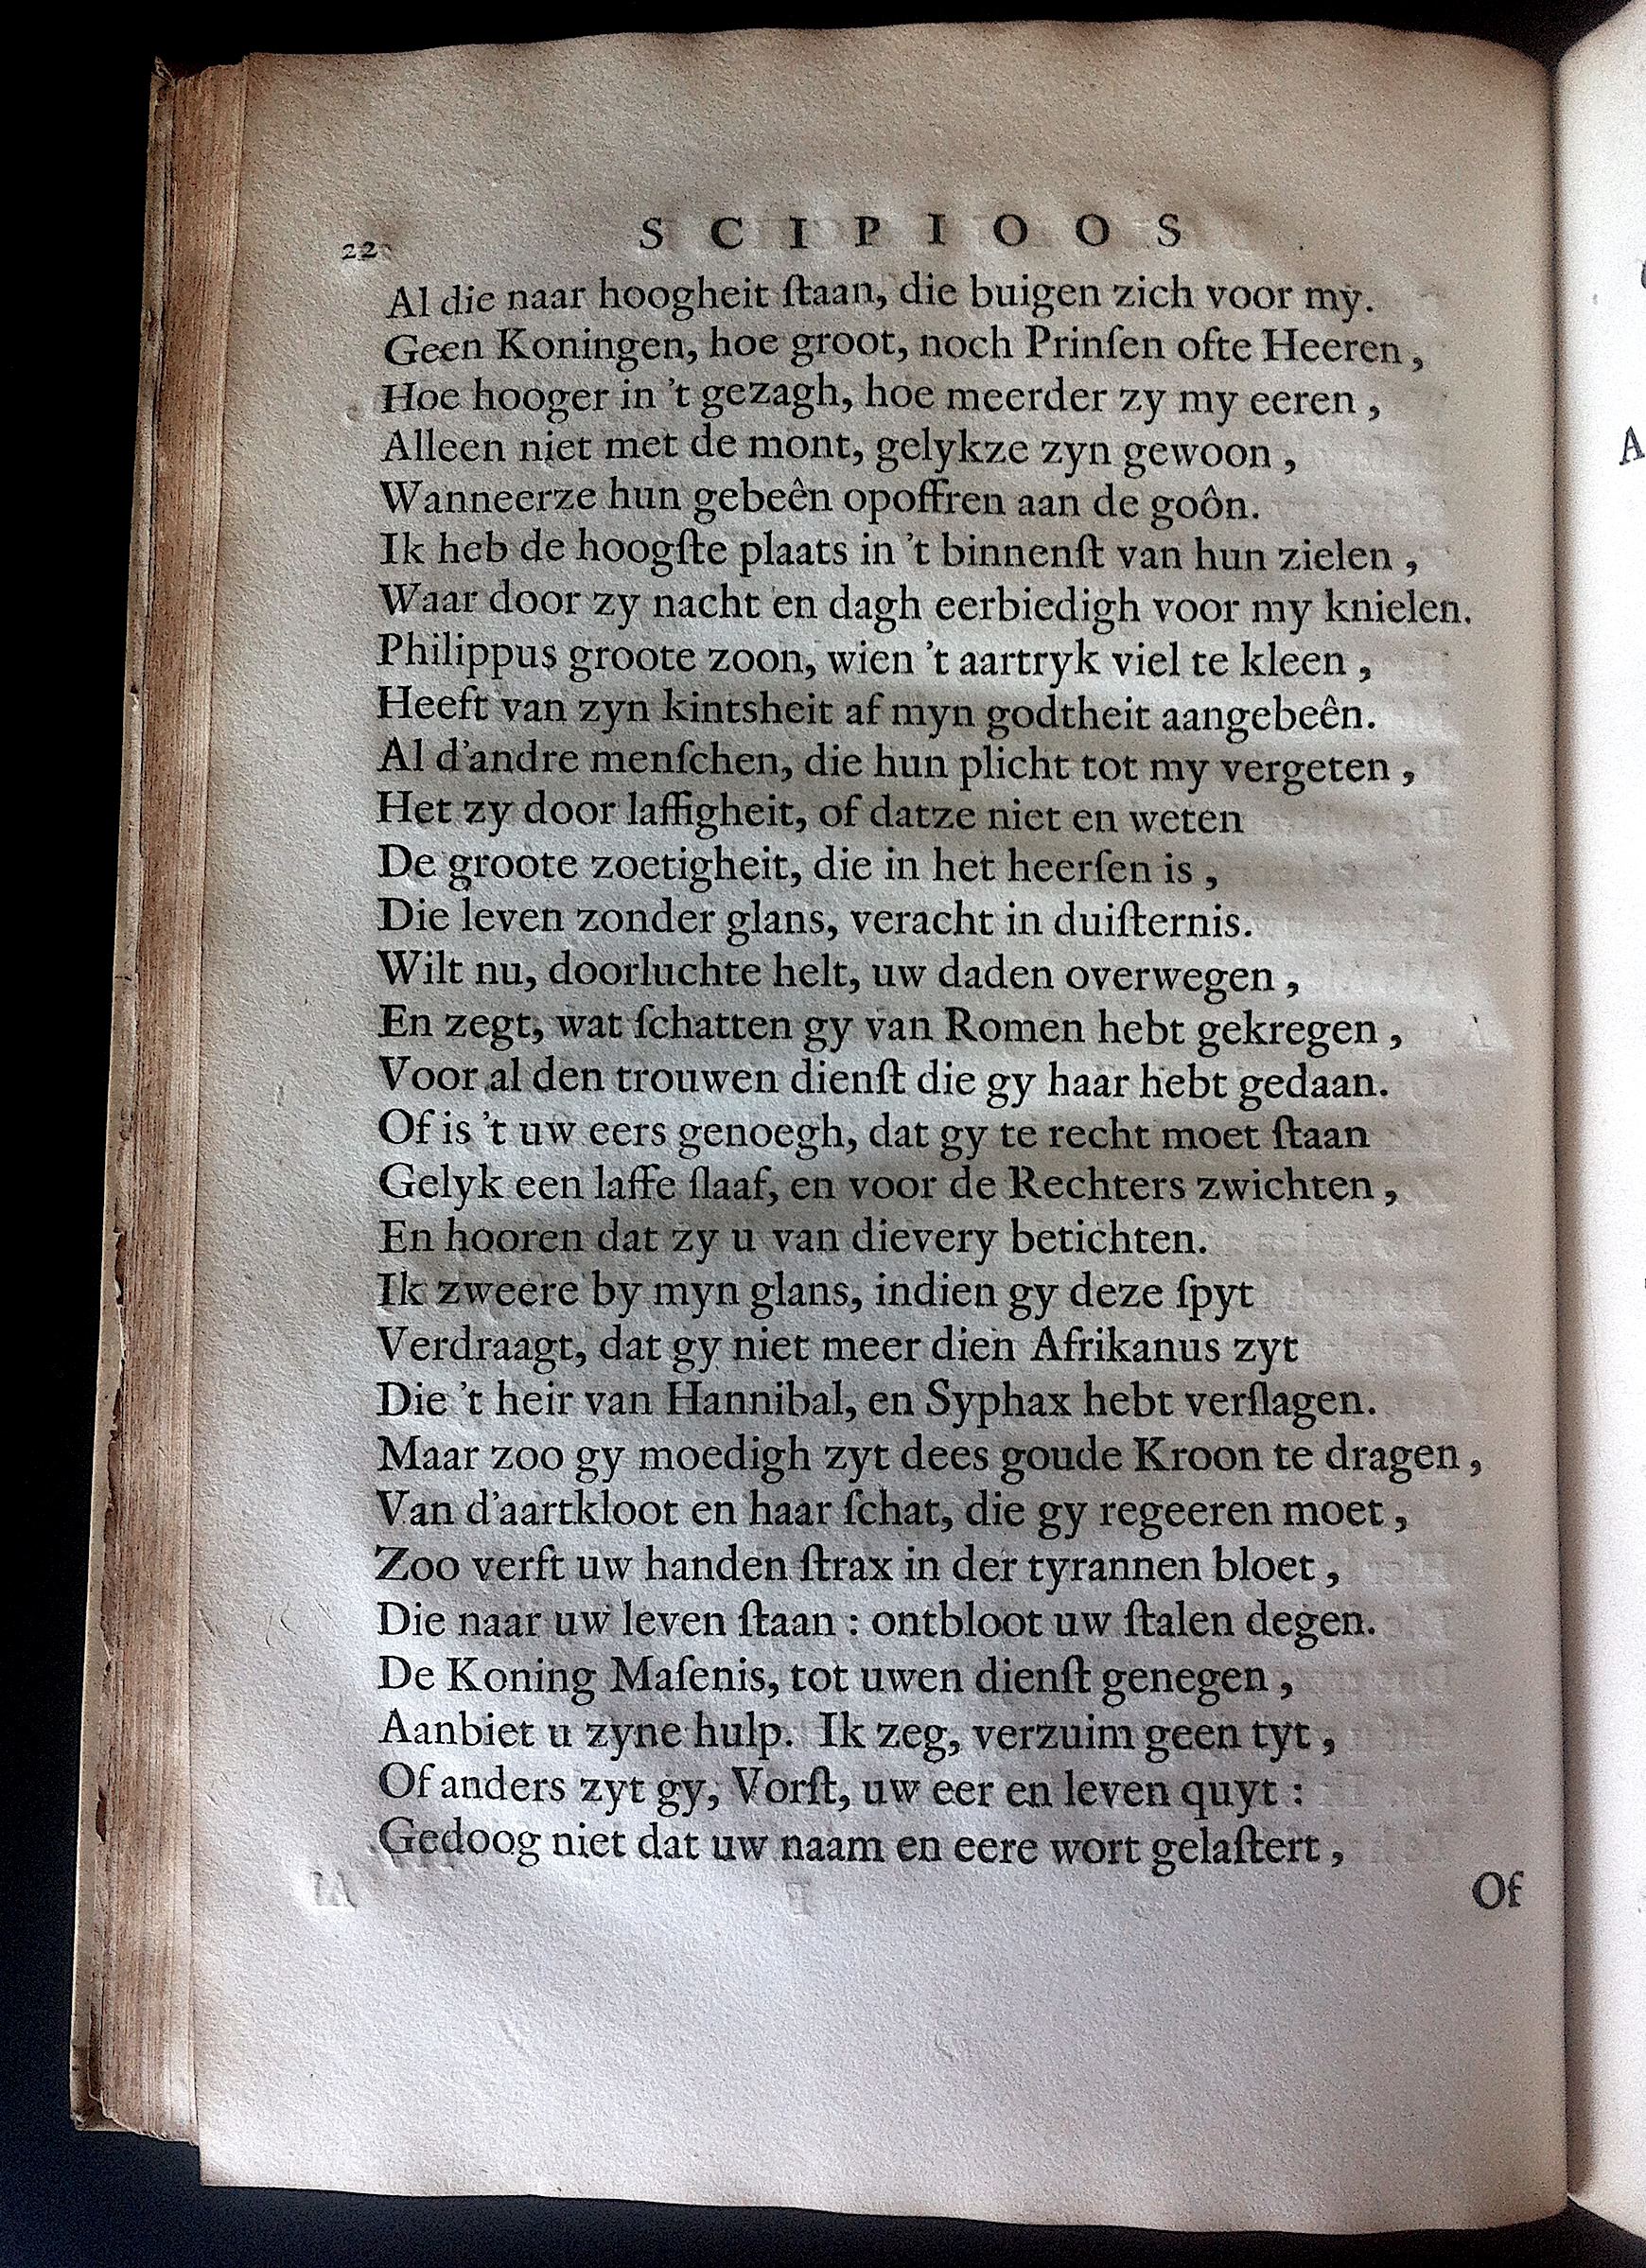 22 SCIPIOOS
Al die naar hoogheit ſtaan, die buigen zich voor my.
Geen Koningen, hoe groot, noch Prinſen ofte Heeren,
Hoe hooger in 't gezagh, hoe meerder zy my eeren,
Alleen niet met de mont, gelykze zyn gewoon,
Wanneerze hun gebeên opoffren aan de goôn.
Ik heb de hoogſte plaats in 't binnenſt van hun zielen,
Waar door zy nacht en dagh eerbiedigh voor my knielen.
Philippus groote zoon, wien 't aartryk viel te kleen,
Heeft van zyn kintsheit af myn godtheit aangebeên.
Al d'andre menſchen, die hun plicht tot my vergeten,
Het zy door laffigheit, of datze niet en weten
De groote zoetigheit, die in het heerſen is,
Die leven zonder glans, veracht in duiſternis.
Wilt nu, doorluchte helt, uw daden overwegen,
En zegt, wat ſchatten gy van Romen hebt gekregen,
Voor al den trouwen dienſt die gy haar hebt gedaan.
Of is 't uw eers genoegh, dat gy te recht moet ſtaan
Gelyk een laffe ſlaaf, en voor de Rechters zwichten,
En hooren dat zy u van dievery betichten.
Ik zweere by myn glans, indien gy deze ſpyt
Verdraagt, dat gy niet meer dien Afrikanus zyt
Die 't heir van Hannibal, en Syphax hebt verſlagen.
Maar zoo gy moedigh zyt dees goude Kroon te dragen,
Van d'aartkloot en haar ſchat, die gy regeeren moet,
Zoo verft uw handen ſtrax in der tyrannen bloet,
Die naar uw leven ſtaan: ontbloot uw ſtalen degen.
De Koning Maſenis, tot uwen dienſt genegen,
Aanbiet u zyne hulp. Ik zeg, verzuim geen tyt,
Of anders zyt gy, Vorſt, uw eer en leven quyt:
Gedoog niet dat uw naam en eere wort gelaſtert,
Of
A